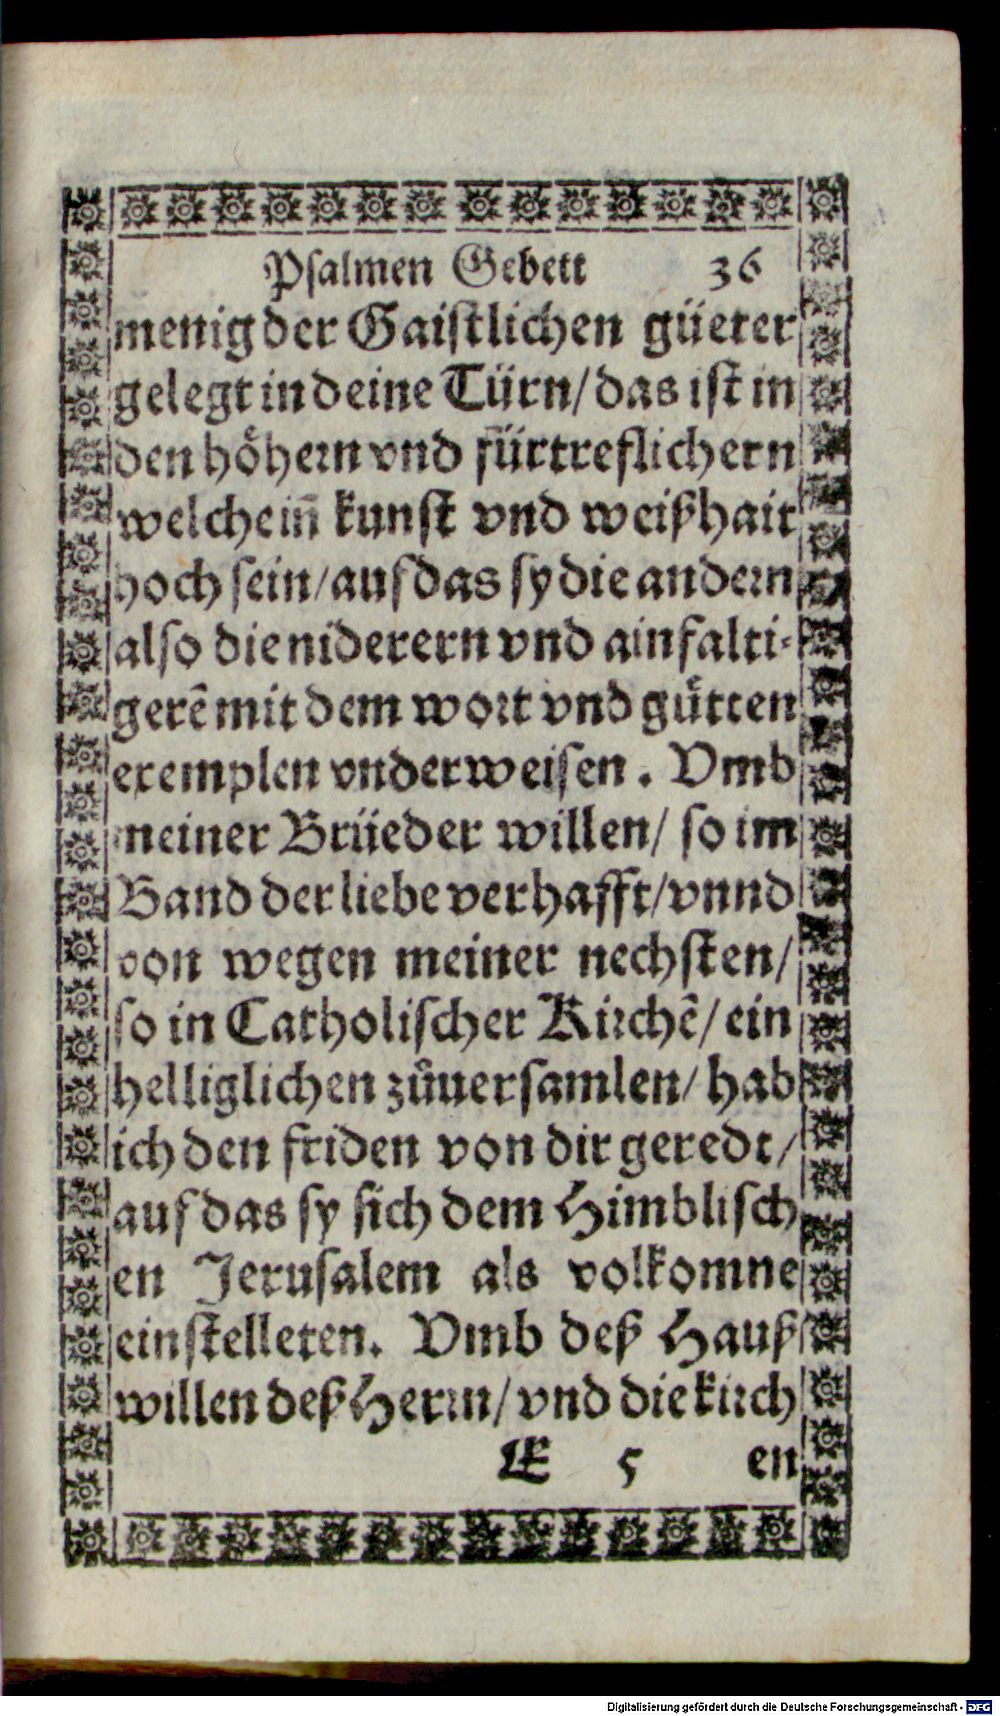 Psalmen Gebett 36
menig der Gaistlichen güeter
gelegt in deine Türn/ das ist in
den höhern vnd fürtreflichern
welche in̄ kunst vnd weißhait
hoch sein/ auf das sy die andern
also die niderern vnd ainfalti-
gerē mit dem wort vnd gůtten
exemplen vnderweisen. Vmb
meiner Brüeder willen/ so im
Band der liebe verhafft/ vnnd
von wegen meiner nechsten/
so in Catholischer Kirchē/ ein
helliglichen zůuersamlen/ hab
ich den friden von dir geredt/
auf das sy sich dem Himblisch
en Jerusalem als volkomne
einstelleten. Vmb deß Hauß
willen deß Herrn/ vnd die kirch
E 5 en
Digitalisierung gefördert durch die Deutsche Forschungsgemeinschaft - DFG